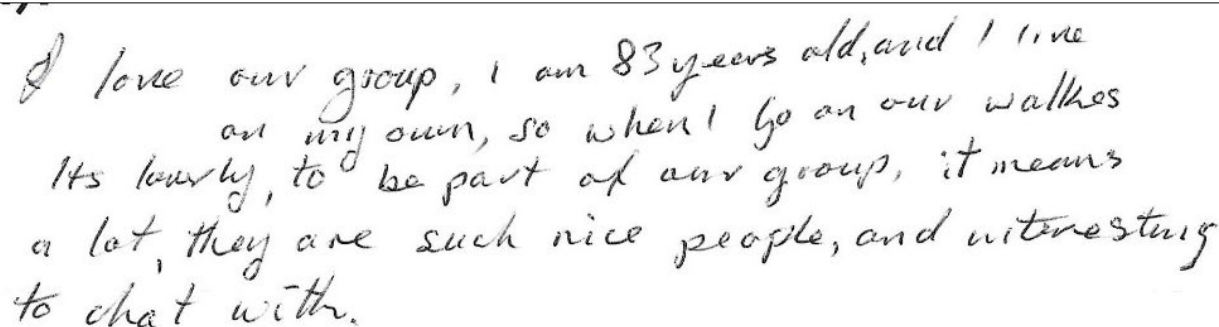 I love our group, I am 83 years old, and I live
on my own, so when I go on our walkes
Its lovely, to be part of our group, it means
a lot, they are such nice people, and interesting
to chat with.